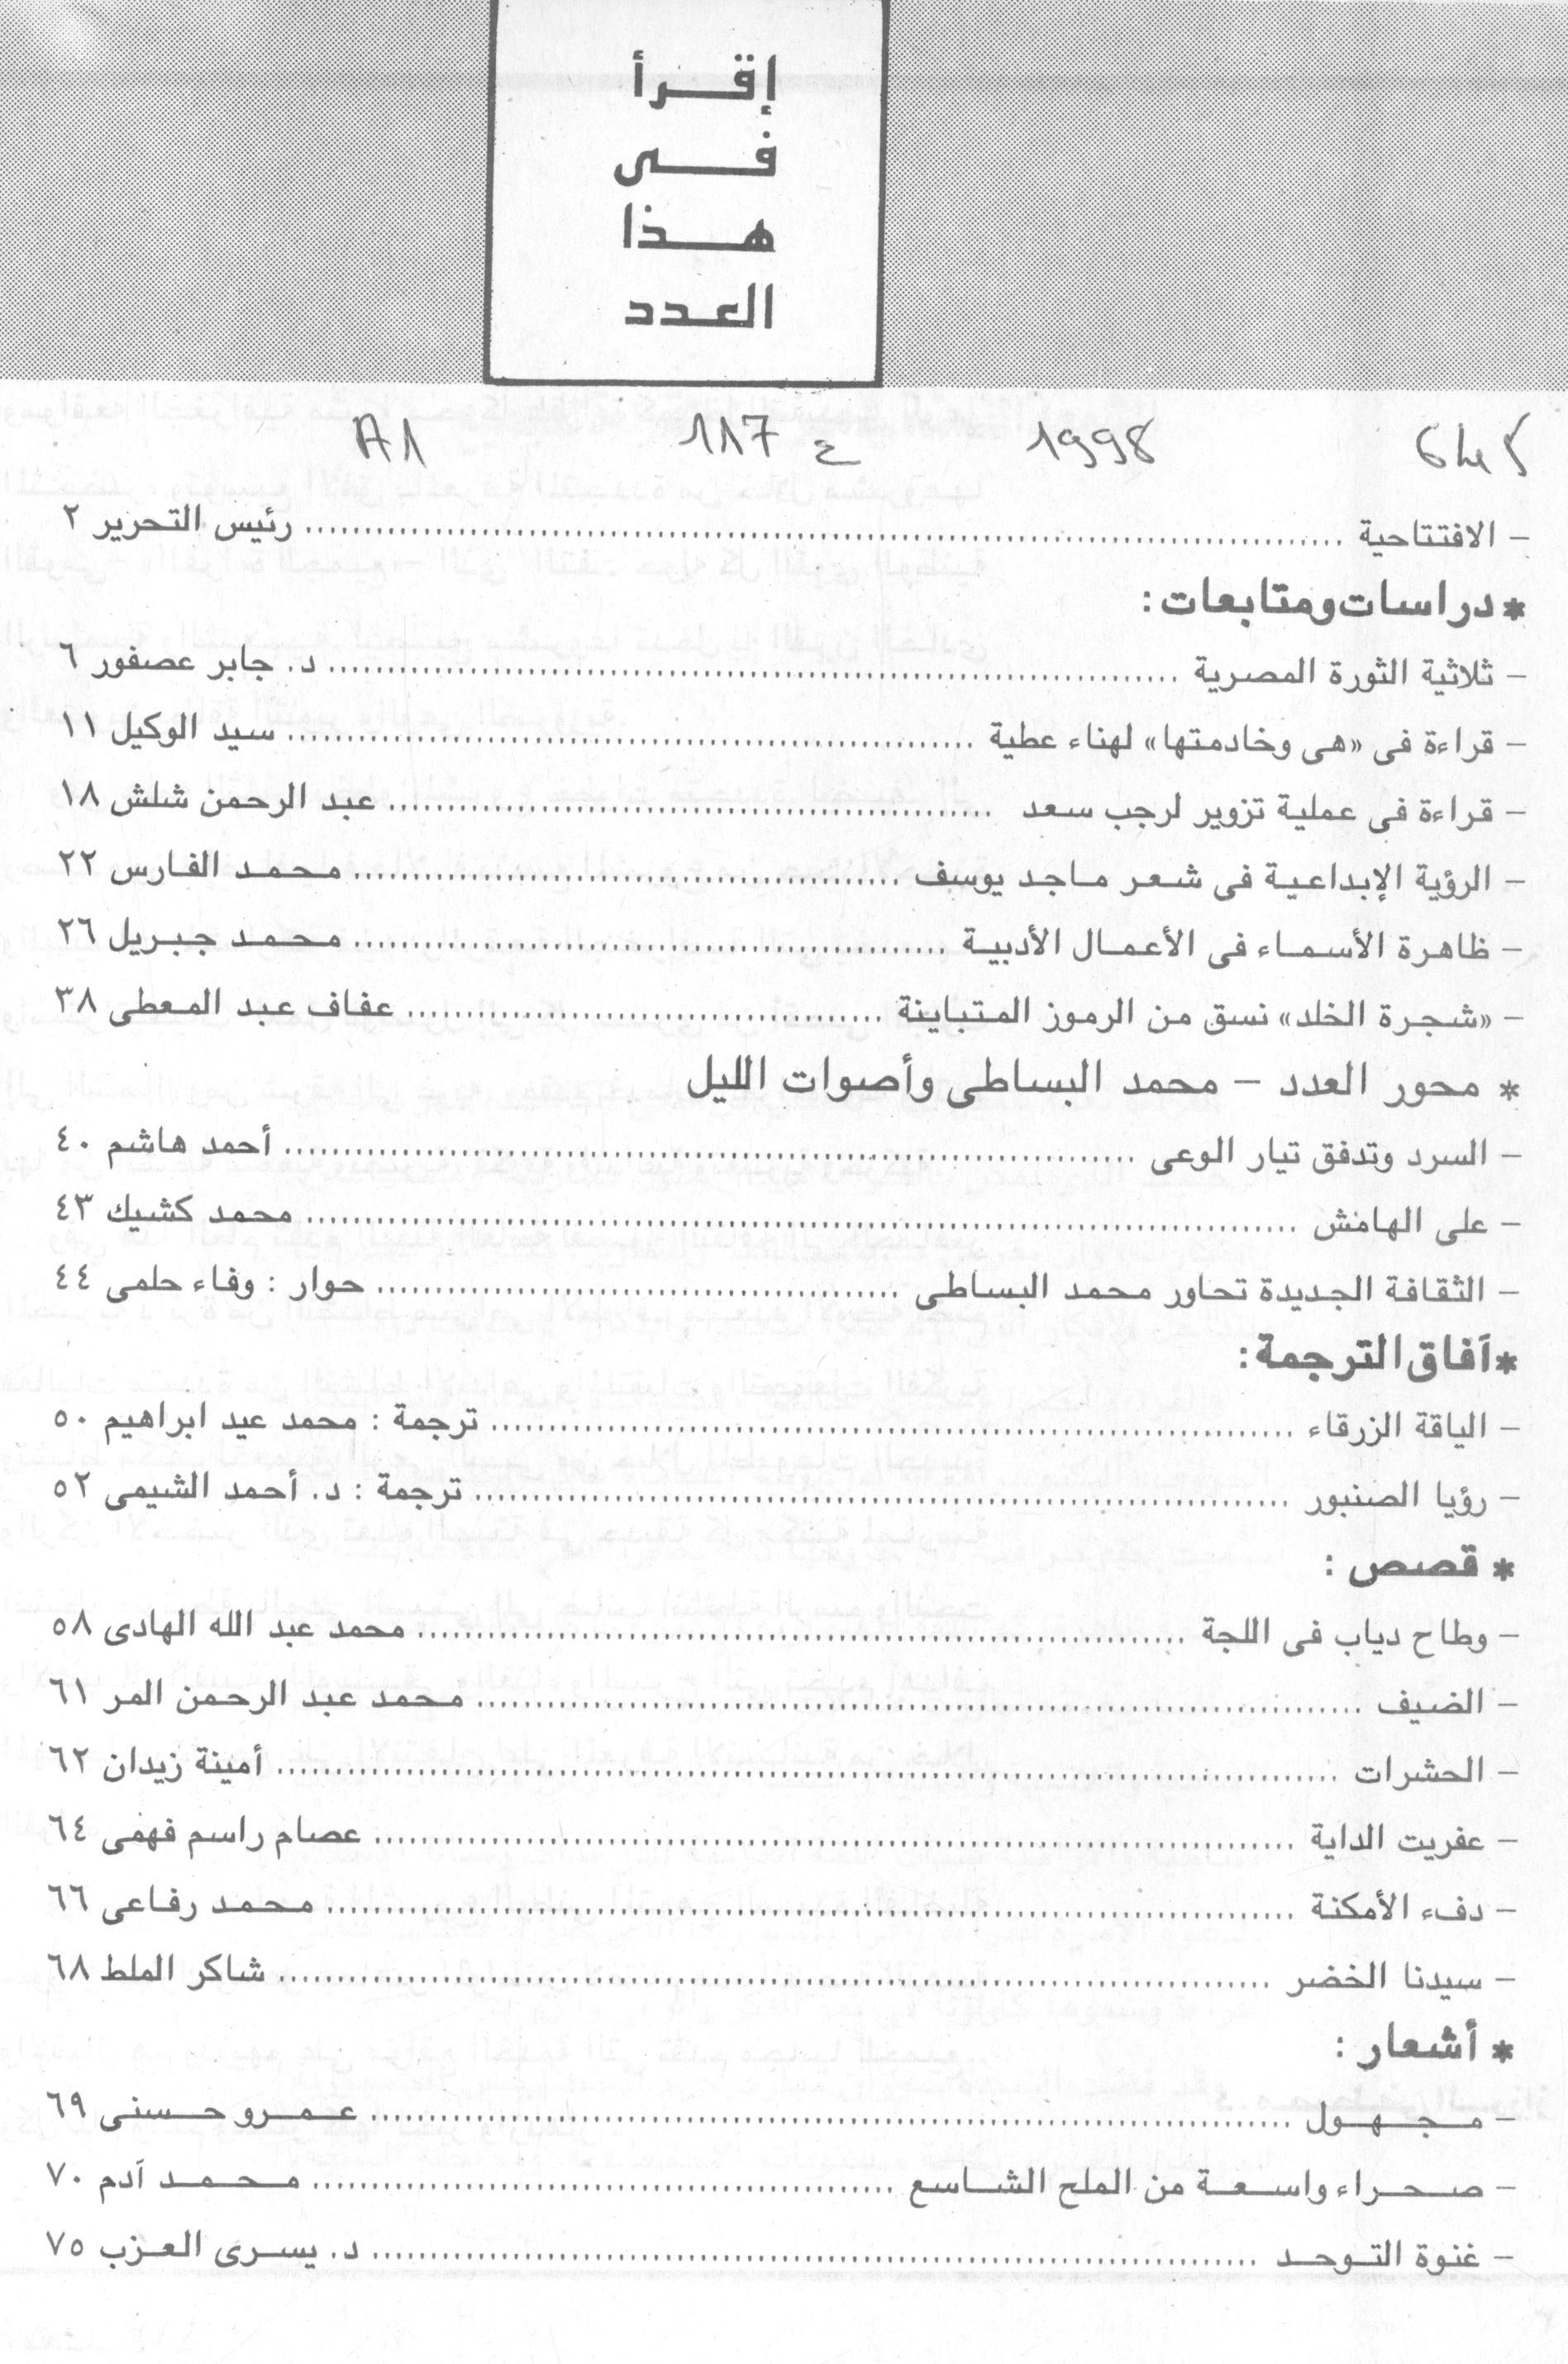 إقرأ
فى
هذا
العدد
1998 ع 117 A1
– الافتتاحية ........ رئيس التحرير ٢
* دراسات ومتابعات :
– ثلاثية الثورة المصرية ........ د. جابر عصفور ٦
– قراءة فى «هى وخادمتها» لهناء عطية ........ سيد الوكيل ١١
– قراءة فى عملية تزوير لرجب سعد ........ عبد الرحمن شلش ١٨
– الرؤية الإبداعية فى شعر ماجد يوسف ........ محمد الفارس ٢٢
– ظاهرة الأسماء فى الأعمال الأدبية ........ محمد جبريل ٢٦
– «شجرة الخلد» نسق من الرموز المتباينة ........ عفاف عبد المعطى ٣٨
* محور العدد – محمد البساطى وأصوات الليل
– السرد وتدفق تيار الوعى ........ أحمد هاشم ٤٠
– على الهامش ........ محمد كشيك ٤٣
– الثقافة الجديدة تحاور محمد البساطى ........ حوار : وفاء حلمى ٤٤
* آفاق الترجمة :
– الياقة الزرقاء ........ ترجمة : محمد عيد ابراهيم ٥٠
– رؤيا الصنبور ........ ترجمة : د. أحمد الشيمى ٥٢
* قصص :
– وطاح دياب فى اللجة ........ محمد عبد الله الهادى ٥٨
– الضيف ........ محمد عبد الرحمن المر ٦١
– الحشرات ........ أمينة زيدان ٦٢
– عفريت الداية ........ عصام راسم فهمى ٦٤
– دفء الأمكنة ........ محمد رفاعى ٦٦
– سيدنا الخضر ........ شاكر الملط ٦٨
* أشعار :
– مجهول ........ عمرو حسنى ٦٩
– صحراء واسعة من الملح الشاسع ........ محمد آدم ٧٠
– غنوة التوحد ........ د. يسرى العزب ٧٥